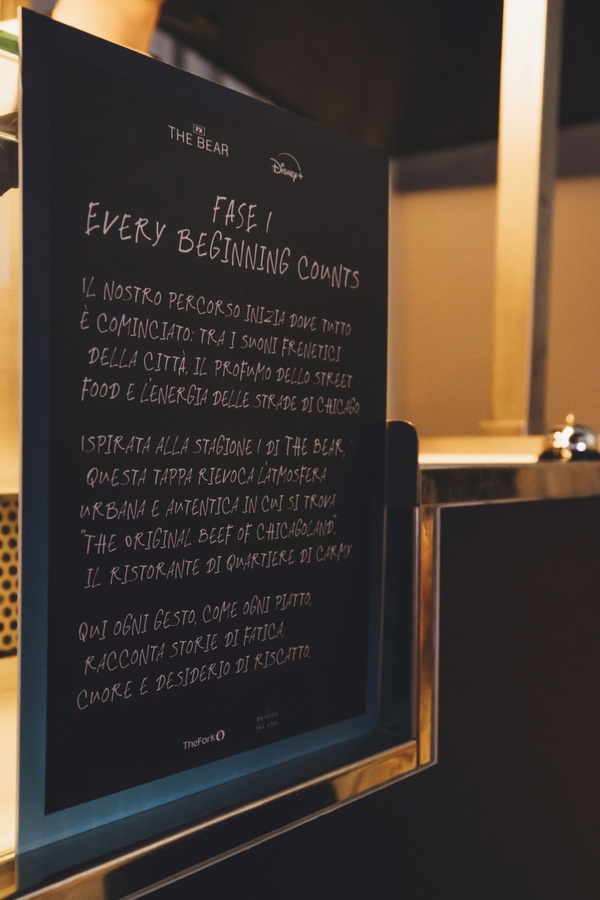 FX
THE BEAR
Disney+
FASE 1
EVERY BEGINNING COUNTS
IL NOSTRO PERCORSO INIZIA DOVE TUTTO
È COMINCIATO: TRA I SUONI FRENETICI
DELLA CITTÀ, IL PROFUMO DELLO STREET
FOOD E L'ENERGIA DELLE STRADE DI CHICAGO.
ISPIRATA ALLA STAGIONE 1 DI THE BEAR,
QUESTA TAPPA RIEVOCA L'ATMOSFERA
URBANA E AUTENTICA IN CUI SI TROVA
"THE ORIGINAL BEEF OF CHICAGOLAND",
IL RISTORANTE DI QUARTIERE DI CARMY.
QUI OGNI GESTO, COME OGNI PIATTO,
RACCONTA STORIE DI FATICA,
CUORE E DESIDERIO DI RISCATTO.
TheFork